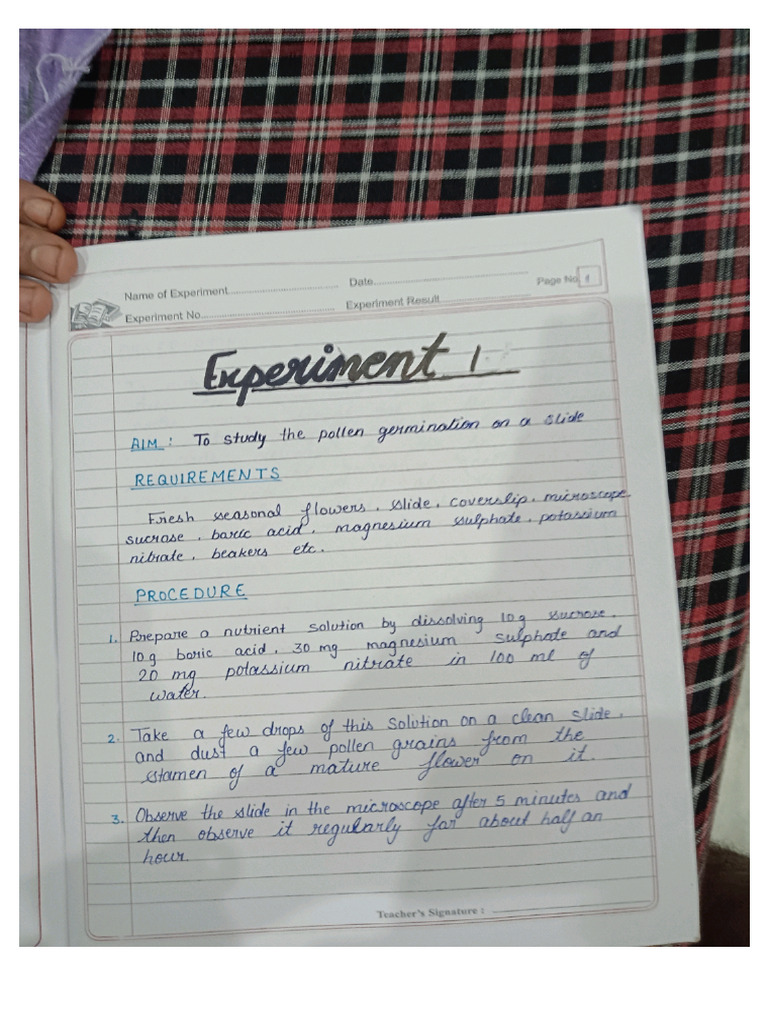 Name of Experiment.................... Date....................
Page No. 1
Experiment No.................... Experiment Result....................
Experiment 1
AIM : To study the pollen germination on a slide
REQUIREMENTS
Fresh seasonal flowers, slide, coverslip, microscope,
sucrose, boric acid, magnesium sulphate, potassium
nitrate, beakers etc.
PROCEDURE
1. Prepare a nutrient solution by dissolving 10g sucrose,
10g boric acid, 30 mg magnesium sulphate and
20 mg potassium nitrate in 100 ml of
water.
2. Take a few drops of this solution on a clean slide,
and dust a few pollen grains from the
stamen of a mature flower on it.
3. Observe the slide in the microscope after 5 minutes and
then observe it regularly for about half an
hour.
Teacher's Signature : ____________